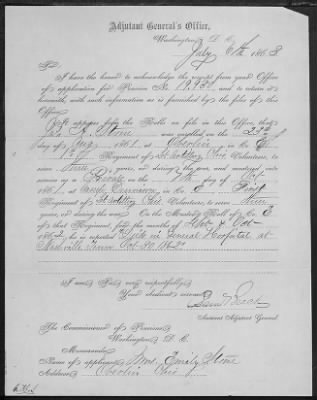 Adjutant General's Office,
Washington, D. C.
July 6th 1863
Sir:
I have the honor to acknowledge the receipt from your Office
of application for Pension No. and to return it
herewith, with such information as is furnished by the files of this
Office.
It appears from the Rolls on file in this Office, that
A. Stone was enrolled on the 23d
day of Aug 1861, at Oberlin in Co.
Regiment of Ohio Volunteers, to serve
three years, or during the war, and mustered into
service as a Private on the day of
1861, at Camp Dennison, in Co. E First
Regiment of Ohio Volunteers, to serve three
years, or during the war. On the Muster Roll of Co. E
of that Regiment, for the months of Sept & Oct
1862 he is reported Died in General Hospital at
Nashville Tenn Oct 30, 1862
I am, Sir, very respectfully,
Your obedient servant,
Assistant Adjutant General.
The Commissioner of Pensions
Washington D. C.
Memoranda:
Name of applicant, Mrs. Emily Stone
Address, Oberlin Ohio